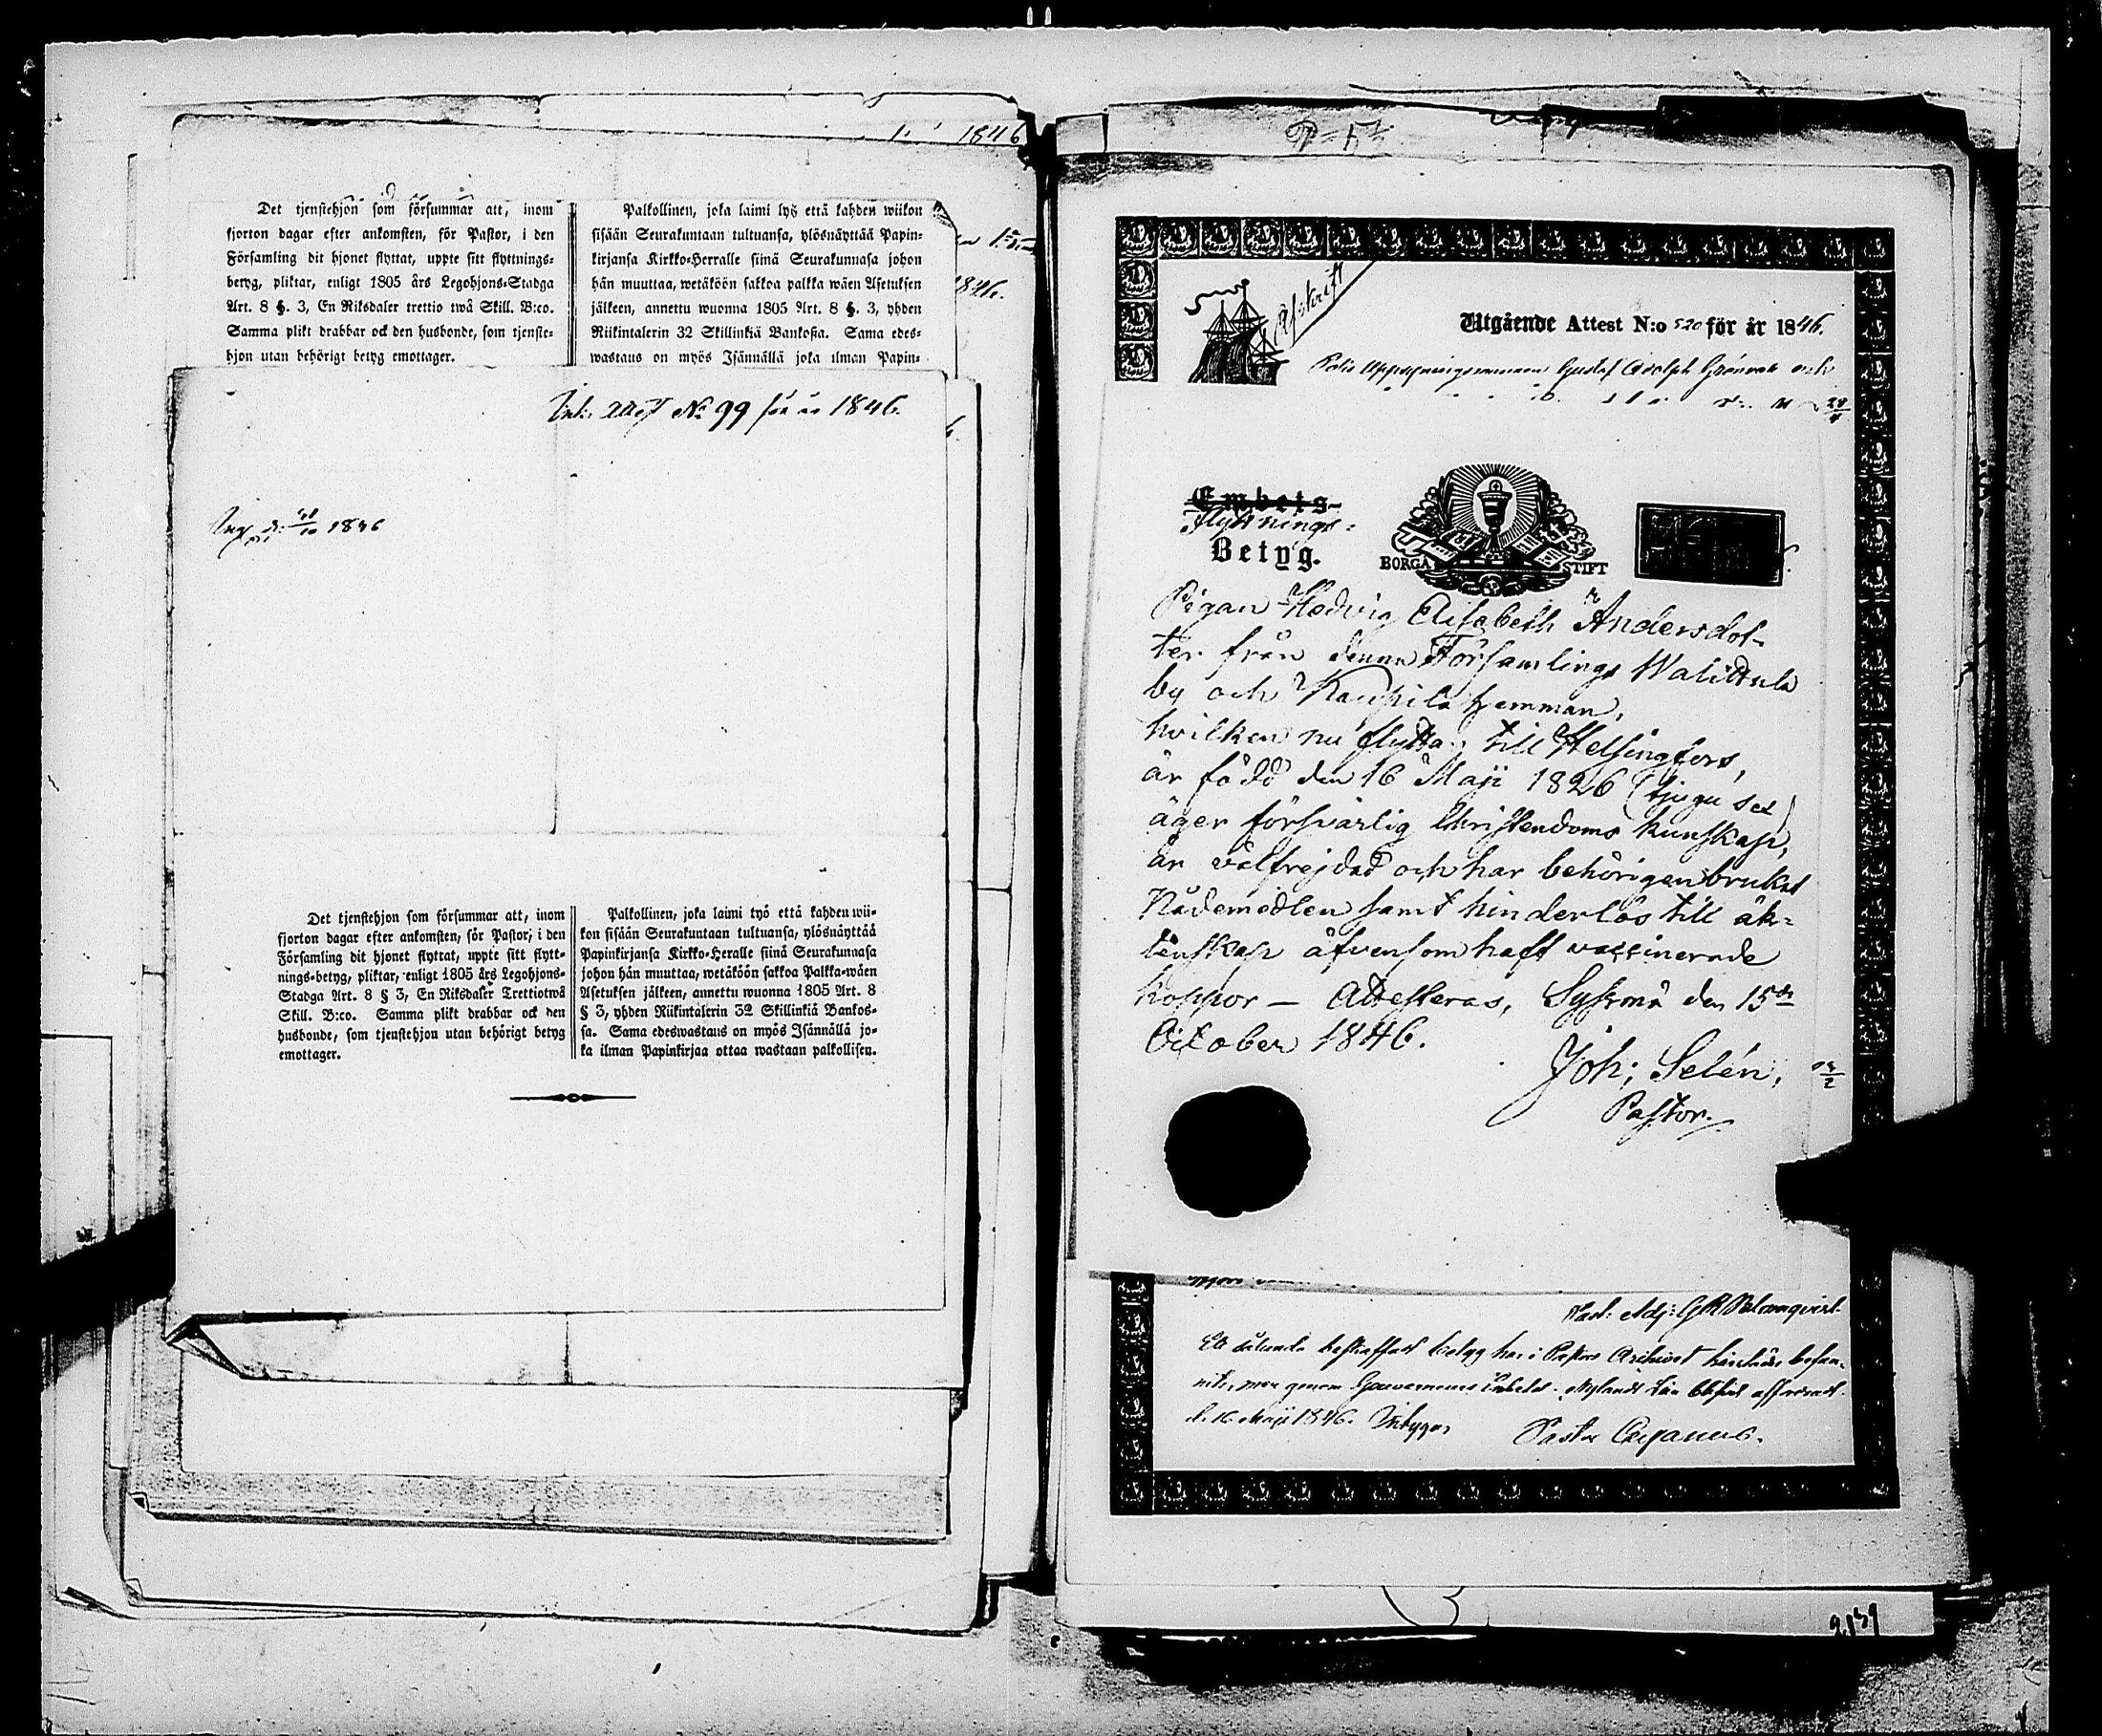 1846
Det tjenstehjon som försummar att, inom
fjorton dagar efter ankomsten, för Pastor, i den
Församling dit hjonet flyttat, uppte sitt flyttnings-
betyg, pliktar, enligt 1805 års Legohjons-Stadga
Art. 8 §. 3, En Riksdaler trettio twå Skill. B:co.
Samma plikt drabbar ock den husbonde, som tjenste-
hjon utan behörigt betyg emottager.
Palkollinen, joka laimi lyö että kahden wiikon
sisään Seurakuntaan tultuansa, ylösnäyttää Papin-
kirjansa Kirkko-Herralle siinä Seurakunnasa johon
hän muuttaa, wetäköön sakkoa palkka wäen Asetuksen
jälkeen, annettu wuonna 1805 Art. 8 §. 3, yhden
Riikintalerin 32 Skillinkiä Bankosa. Sama edes-
wastaus on myös Isännällä joka ilman Papin-
1846.
Ink: Attest No 99 för år 1846.
1846
Det tjenstehjon som försummar att, inom
fjorton dagar efter ankomsten, för Pastor, i den
Församling dit hjonet flyttat, uppte sitt flytt-
nings-betyg, pliktar, enligt 1805 års Legohjons-
Stadga Art. 8 § 3, En Riksdaler Trettiotwå
Skill. B:co. Samma plikt drabbar ock den
husbonde, som tjenstehjon utan behörigt betyg
emottager.
Palkollinen, joka laimi työ että kahden wii-
kon sisään Seurakuntaan tultuansa, ylösnäyttää
Papinkirjansa Kirkko-Heralle siinä Seurakunnasa
johon hän muuttaa, wetäköön sakkoa Palkka-wäen
Asetuksen jälkeen, annettu wuonna 1805 Art. 8
§ 3, yhden Riikintalerin 32 Skillinkiä Bankos-
sa. Sama edeswastaus on myös Isännällä jo-
ka ilman Papinkirjaa ottaa wastaan palkollisen.
Afskrift
Utgående Attest N:o 520 för år 1846.
Gustaf Adolph Grönvall och
Embets-
Flyttnings-
Betyg.
BORGÅ STIFT
Pigan Hedvig Elisabeth Andersdot-
ter från denna Församlings Walittula
by och Kauppila hemman,
hvilken nu flyttar till Helsingfors,
är född den 16 Maji 1826 (tjugu sex)
äger försvarlig Christendoms kunskap,
är välfrejdad och har behörigen brukat
Nådemedlen samt hinderlös till äk-
tenskap äfvensom haft vaccinerade
koppor — Attesteras, Sysmä den 15de
October 1846.
Joh: Selén,
Pastor.
Past: Adj: G R Malmqvist
Ett sålunda beskaffadt betyg har i Pastors Archivet härstädes befun-
nits, men genom Gouverneurs Embetet i Nylands Län blifvit affordradt
d. 16 Maji 1846. Intygar
Pastor Cygnæus.